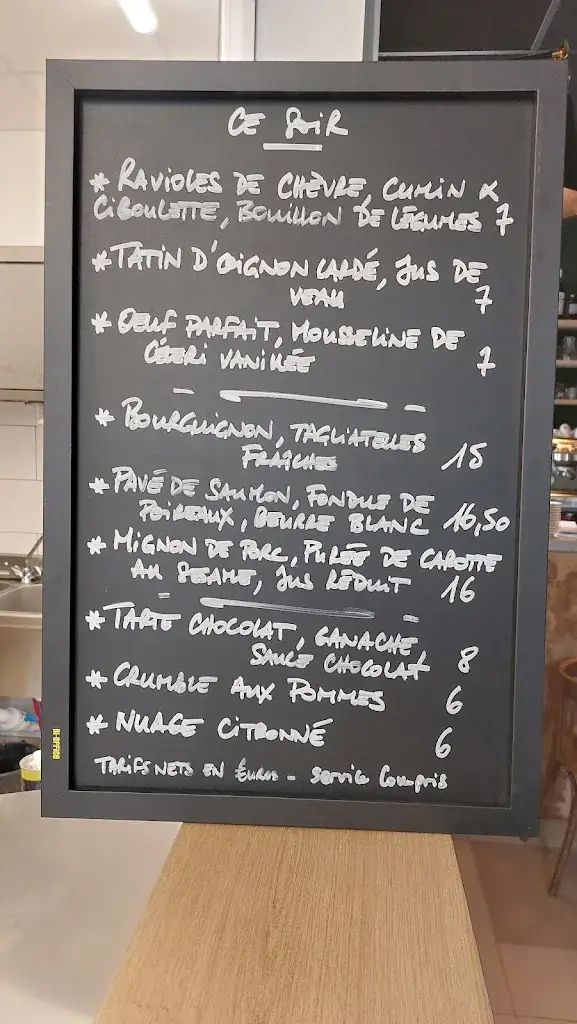 CE SOIR
* RAVIOLES DE CHÈVRE, CUMIN &
CIBOULETTE, BOUILLON DE LÉGUMES 7
* TATIN D'OIGNON LARDÉ, JUS DE
VEAU 7
* OEUF PARFAIT, MOUSSELINE DE
CÉLERI VANILLÉE 7
* BOURGUIGNON, TAGLIATELLES
FRAÎCHES 15
* PAVÉ DE SAUMON, FONDUE DE
POIREAUX, BEURRE BLANC 16,50
* MIGNON DE PORC, PURÉE DE CAROTTE
AU SESAME, JUS RÉDUIT 16
* TARTE CHOCOLAT, GANACHE,
SAUCE CHOCOLAT 8
* CRUMBLE AUX POMMES 6
* NUAGE CITRONNÉ 6
TARIFS NETS EN Euros - Service Compris